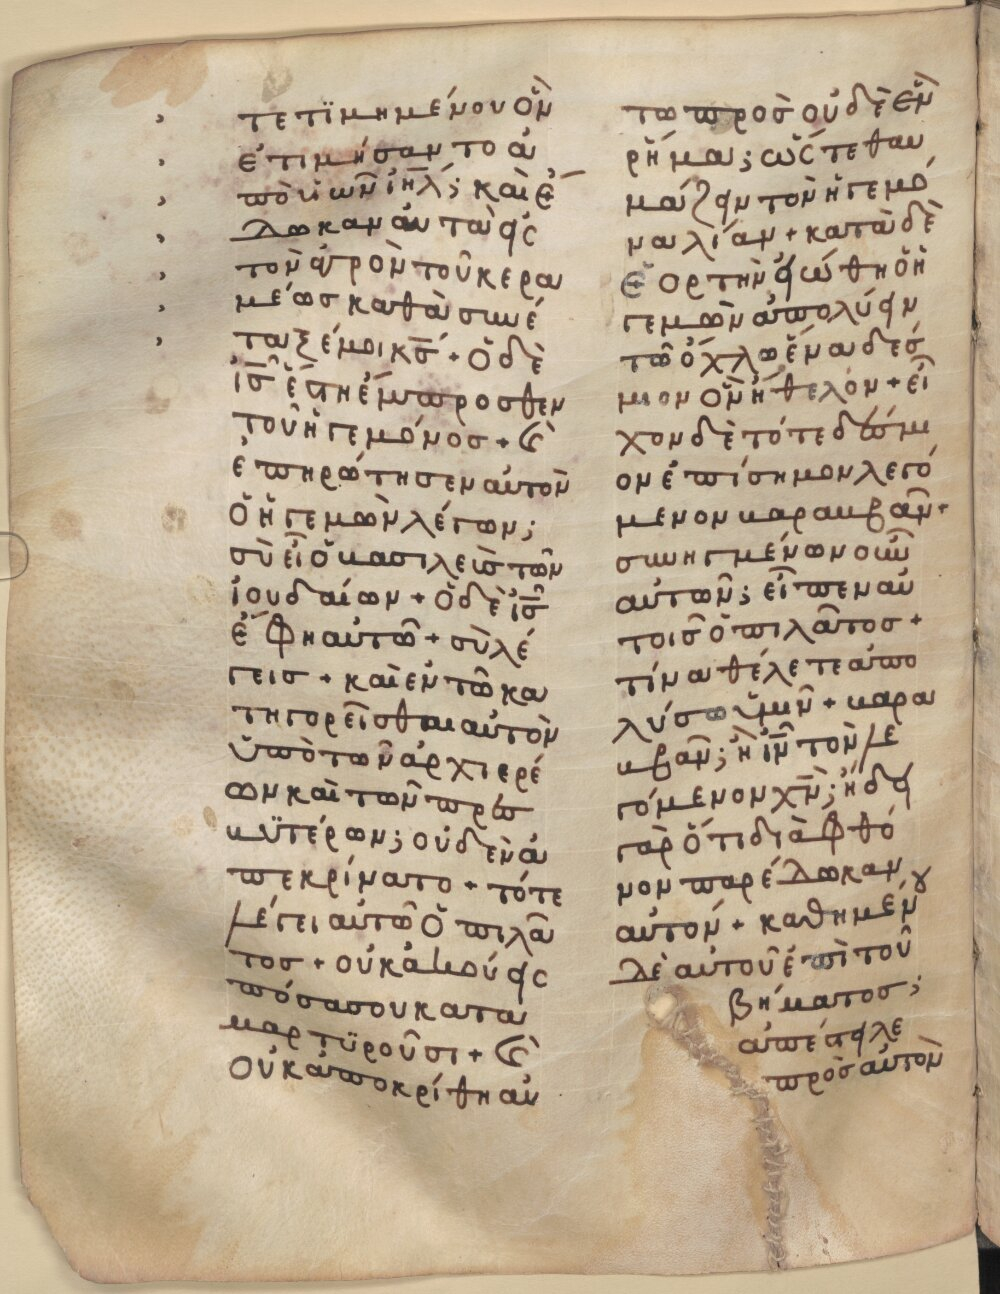 τετϊμημένον ὃν
ἐτιμήσαντο ἀ
πὸ ὑιῶν ιηλ; καὶ ἔ
δωκαν ἀυτὰ εἰς
τὸν ἀγρὸν τοῦ κερα
μέωσ καθὰ συνέ
ταξέ μοι κσ + ὁ δὲ
ισ ἔστη ἔμπροσθεν
τοῦ ἡγεμόνοσ + καὶ
ἐπηρώτησεν ἀυτὸν
ὁ ἡγεμὼν λέγων;
σὺ εἶ ὁ βασιλεὺσ τῶν
ἰουδαίων + ὁ δὲ ισ
ἔφη αυτῶ + σὺ λέ
γεισ + καὶ εν τῶ κα
τηγορεῖσθαι αυτὸν
ὑπὸ τῶν ἀρχιερέ
ων καὶ τῶν πρεσ
βϋτέρων; οὐδὲν ἀ
πεκρίνατο + τότε
λέγει αυτῶ ὁ πιλᾶ
τοσ + οὐκ ἀκούεισ
πόσα σου κατα
μαρτϋροῦσι + καὶ
οὐκ ἀπεκρίθη αυ
τω πρὸσ οὐδὲ ἓν
ρῆμα; ὥστε θαυ
μάζειν τὸν ἡγεμό
να λίαν + κατὰ δὲ
ἑορτὴν εἰώθη ὁ ἡ
γεμὼν ἀπολύειν
τῶ ὄχλω ἕνα δέσ
μιον ὃν ἤθελον + εἶ
χον δὲ τότε δέσμι
ον ἐπίσημον λεγό
μενον βαραββᾶν +
συνηγμένων οὖν
αὐτῶν; εἶπεν αὐ
τοισ ὁ πιλᾶτοσ +
τίνα θέλετε ἀπο
λύσω ὑμῖν + βαρα
ββᾶν; ἢ ιν τὸν λε
γόμενον χν; ἤδει
γὰρ ὅτι διὰ φθό
νον παρέδωκαν
αυτόν + καθημένου
δὲ αὐτοῦ ἐπὶ τοῦ
βήματοσ;
ἀπέστειλε
πρὸσ αὐτὸν